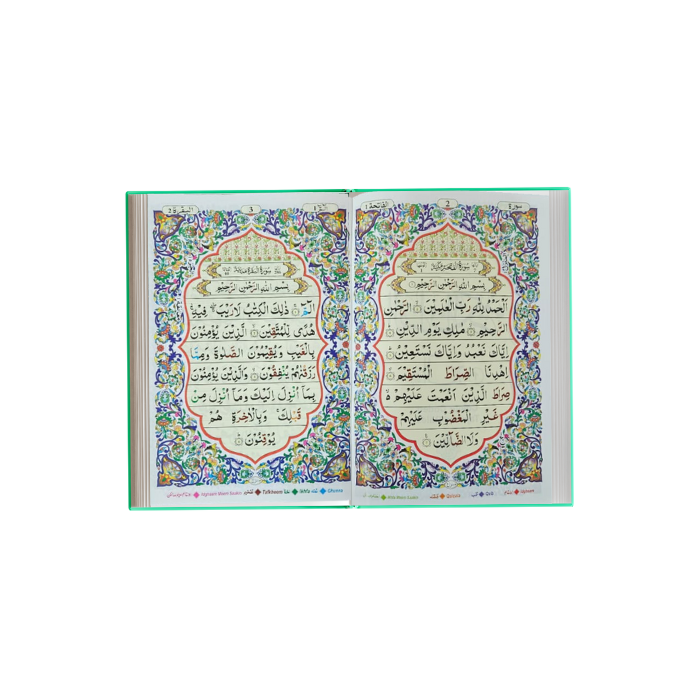 سورة
2
الفاتحة ١
بِسْمِ اللّٰهِ الرَّحْمٰنِ الرَّحِيْمِ
اَلْحَمْدُ لِلّٰهِ رَبِّ الْعٰلَمِيْنَ ۙ﴿۱﴾ الرَّحْمٰنِ
الرَّحِيْمِ ۙ﴿۲﴾ مٰلِكِ يَوْمِ الدِّيْنِ ؕ﴿۳﴾
اِيَّاكَ نَعْبُدُ وَاِيَّاكَ نَسْتَعِيْنُ ؕ﴿۴﴾
اِهْدِنَا الصِّرَاطَ الْمُسْتَقِيْمَ ۙ﴿۵﴾
صِرَاطَ الَّذِيْنَ اَنْعَمْتَ عَلَيْهِمْ ۙ۬
غَيْرِ الْمَغْضُوْبِ عَلَيْهِمْ
وَلَا الضَّآلِّيْنَ ﴿۷﴾
Qalqala
Qalb
Idgham
3
البقرة ٢
بِسْمِ اللّٰهِ الرَّحْمٰنِ الرَّحِيْمِ
الٓمّٓ ۚ﴿۱﴾ ذٰلِكَ الْكِتٰبُ لَا رَيْبَ ۛۚ فِيْهِ ۛۚ
هُدًى لِّلْمُتَّقِيْنَ ۙ﴿۲﴾ الَّذِيْنَ يُؤْمِنُوْنَ
بِالْغَيْبِ وَيُقِيْمُوْنَ الصَّلٰوةَ وَمِمَّا
رَزَقْنٰهُمْ يُنْفِقُوْنَ ۙ﴿۳﴾ وَالَّذِيْنَ يُؤْمِنُوْنَ
بِمَاۤ اُنْزِلَ اِلَيْكَ وَمَاۤ اُنْزِلَ مِنْ
قَبْلِكَ ۚ وَبِالْاٰخِرَةِ هُمْ
يُوْقِنُوْنَ ؕ﴿۴﴾
Idgham Meem Saakin
Tafkheem
Ikhfa
Ghunna